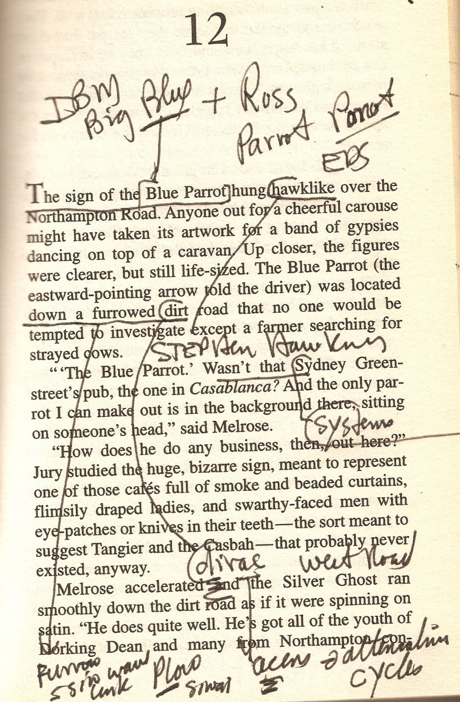 12
IBM
Big Blue + Ross
Parrot Perot
EDS
The sign of the Blue Parrot hung hawklike over the
Northampton Road. Anyone out for a cheerful carouse
might have taken its artwork for a band of gypsies
dancing on top of a caravan. Up closer, the figures
were clearer, but still life-sized. The Blue Parrot (the
eastward-pointing arrow told the driver) was located
down a furrowed dirt road that no one would be
tempted to investigate except a farmer searching for
strayed cows.
STEPHEN Hawking
“‘The Blue Parrot.’ Wasn’t that Sydney Green-
street’s pub, the one in Casablanca? And the only par-
rot I can make out is in the background there, sitting
on someone’s head,” said Melrose.
(systems
“How does he do any business, then, out here?”
Jury studied the huge, bizarre sign, meant to represent
one of those cafés full of smoke and beaded curtains,
flimsily draped ladies, and swarthy-faced men with
eye-patches or knives in their teeth—the sort meant to
suggest Tangier and the Casbah—that probably never
existed, anyway.
dirac West Road
Melrose accelerated and the Silver Ghost ran
smoothly down the dirt road as if it were spinning on
satin. “He does quite well. He’s got all of the youth of
Dorking Dean and many from Northampton con-
Furrow
Plow
cycles